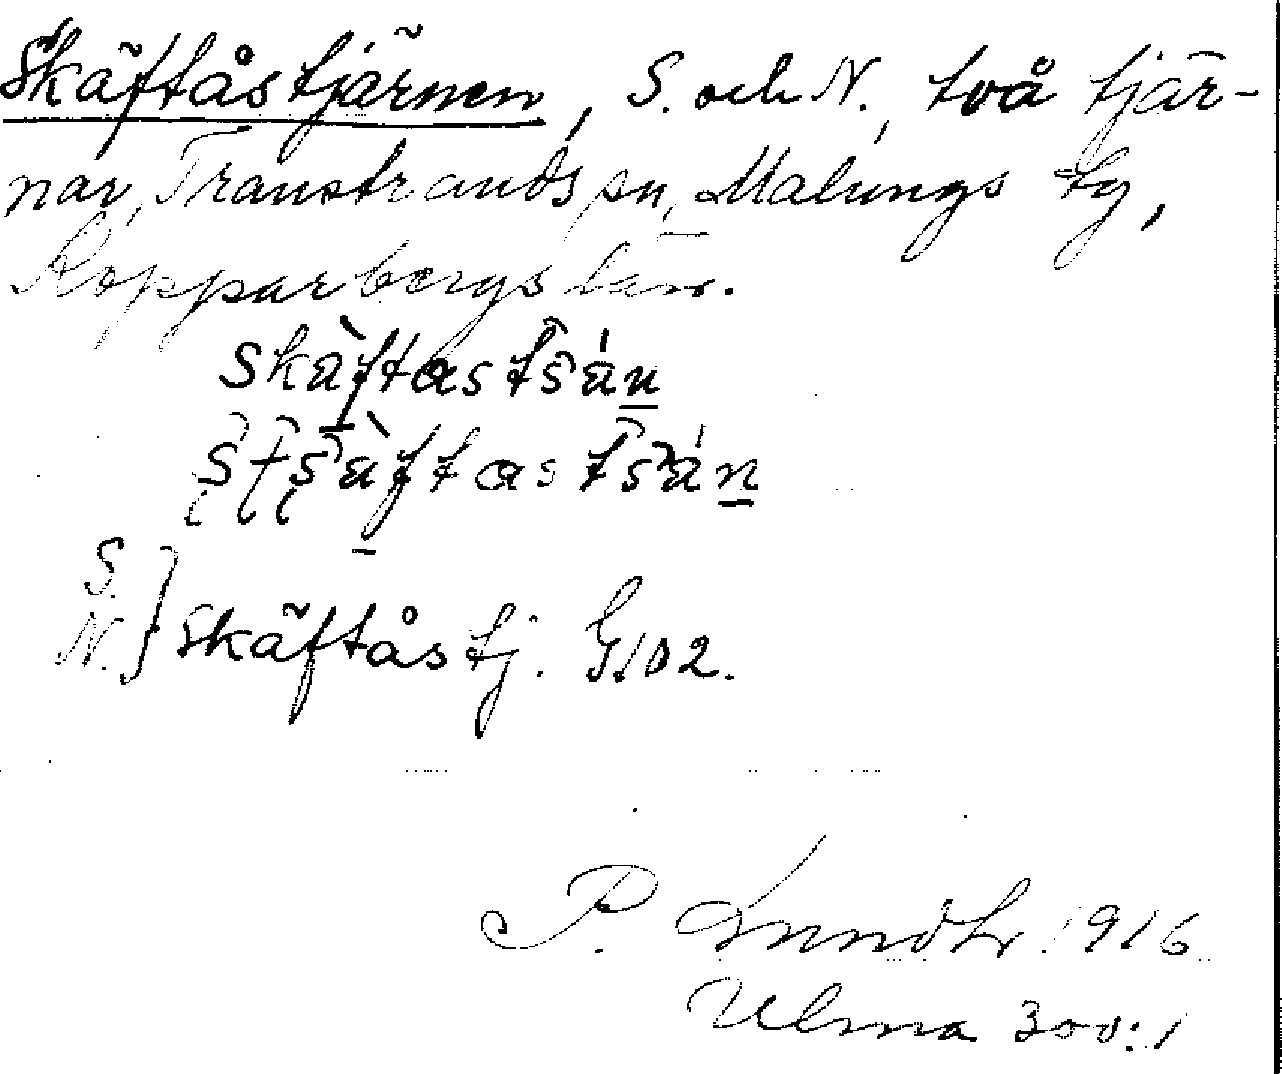 Skäftåstjärnen, S. och N., två tjär-
nar, Transtrands sn, Malungs tg,
Kopparbergs län.
S.
N. } Skäftåstj. G 102.
P. Lundh 1916
Ulma 300:1